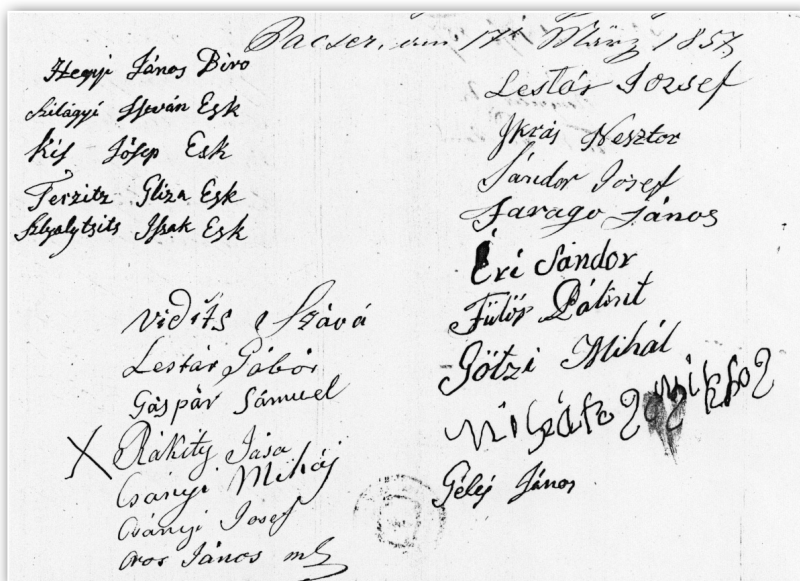 Pacser, am 17t März 1857
Hegyi János Biro
Szilágyi István Esk
Kiss Jósep Esk
Terzitz Gliza Esk
Issak Esk
Vidits Szává
Lestár Gábór
Gáspár Sámuel
X Rákity Jása
Csányi Miháj
Csányi Josef
Oros János mk
Lestár Jozsef
Nesztor
Sándor Josef
Farago János
Éri Sándor
Fülöp Bálint
Götzi Mihál
Géléj János